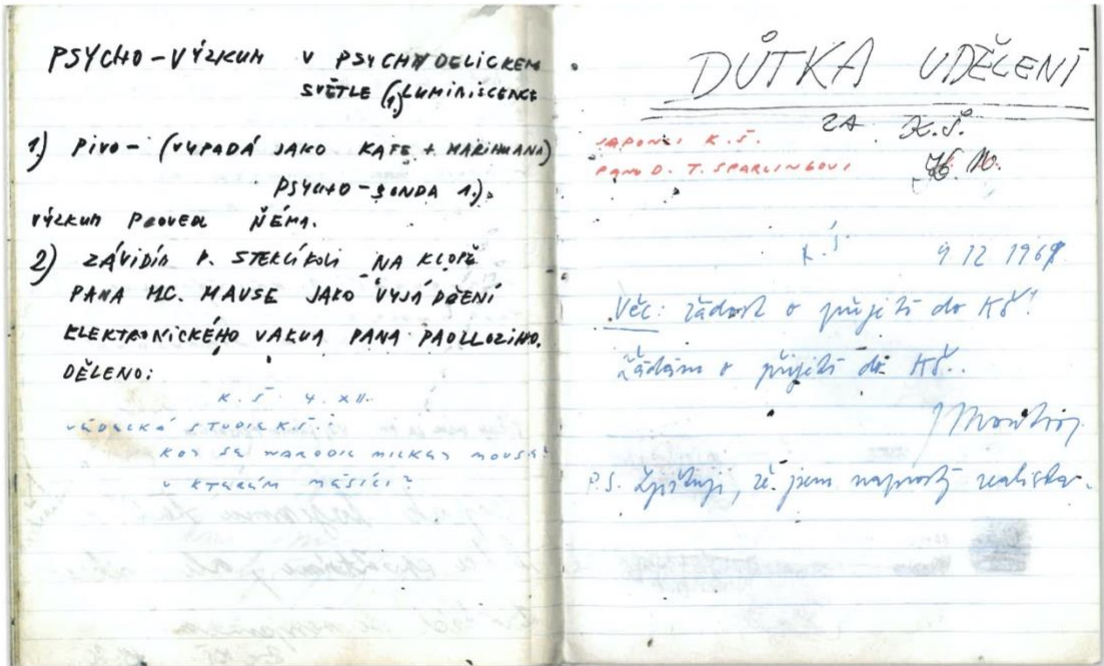 PSYCHO-VÝZKUM V PSYCHYDELICKEM
SVĚTLE (1.) LUMINISCENCE
1.) PIVO - (VYPADÁ JAKO KAFE + MARIHUANA)
PSYCHO-SONDA 1).
VÝZKUM PROVEDL NĚMA.
2) ZÁVIDÍM P. STEKLÍKOVI NA KLOPĚ
PANA MC. MAUSE JAKO VYJÁDŘENÍ
ELEKTRONICKÉHO VAKUA PANA PAOLLOZIHO.
DĚLENO:
K. Š. 4. XII.
VĚDECKÁ STUDIE K.Š.:
KDY SE NARODIL MICKEY MOUSE?
V KTERÉM MĚSÍCI?
DŮTKA UDĚLENÍ
ZA K.Š.
JAPONCI K.Š.
PANO D. T. SPARLINGOVI
K.Š. 9 12 196
Věc: žádost o přijetí do KŠ.
žádám o přijetí do KŠ.
P.S. Zjišťuji, že jsem naprostý realista.